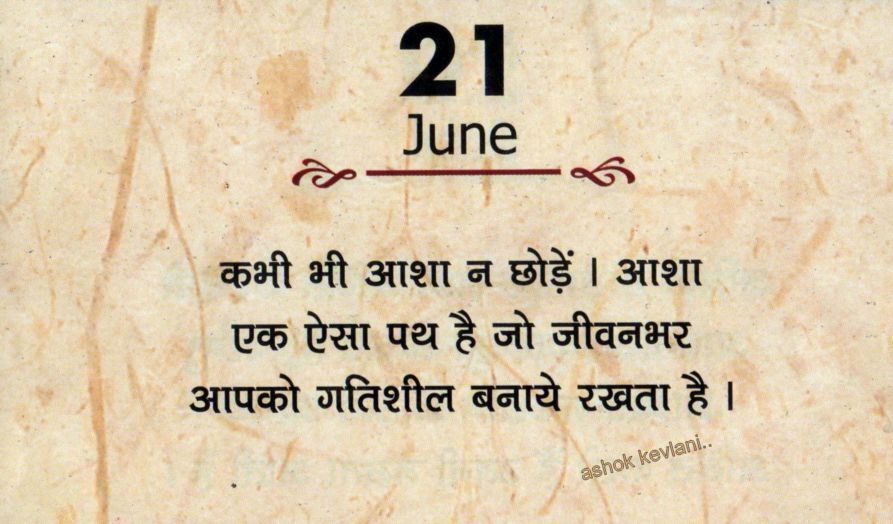 21
June
कभी भी आशा न छोड़ें । आशा
एक ऐसा पथ है जो जीवनभर
आपको गतिशील बनाये रखता है ।
ashok kevlani..